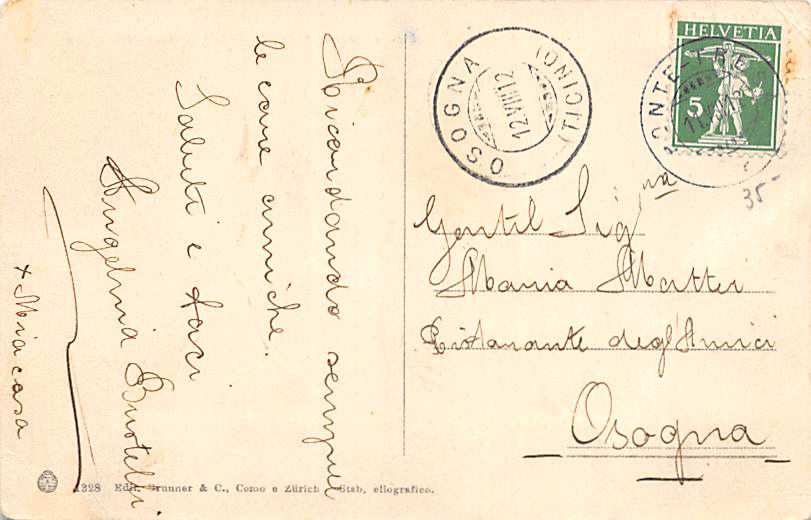 Ricordando sempre
le care amiche.
Saluti e baci
Angelina
+ Mia casa
OSOGNA
(TICINO)
12.VIII.12
HELVETIA
5
PONTE-TRESA
35-
Gentil Signa
Maria Mattei
Ristorante degl'Amici
Osogna
1328 Edit. Brunner & C., Como e Zürich - Stab. eliografico.